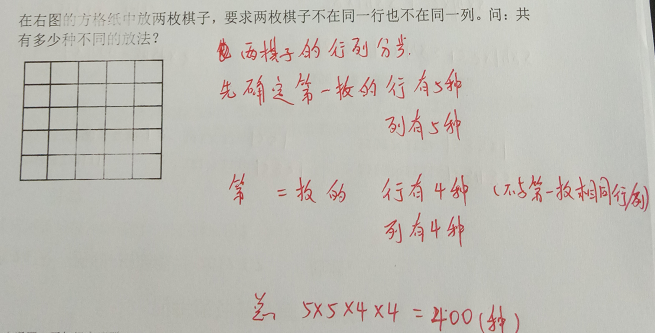 在右图的方格纸中放两枚棋子，要求两枚棋子不在同一行也不在同一列。问：共
有多少种不同的放法？
两棋子的行列分步.
先确定第一枚的行有5种
列有5种
第二枚的 行有4种 (不与第一枚相同行/列)
列有4种
总 5×5×4×4=400(种)